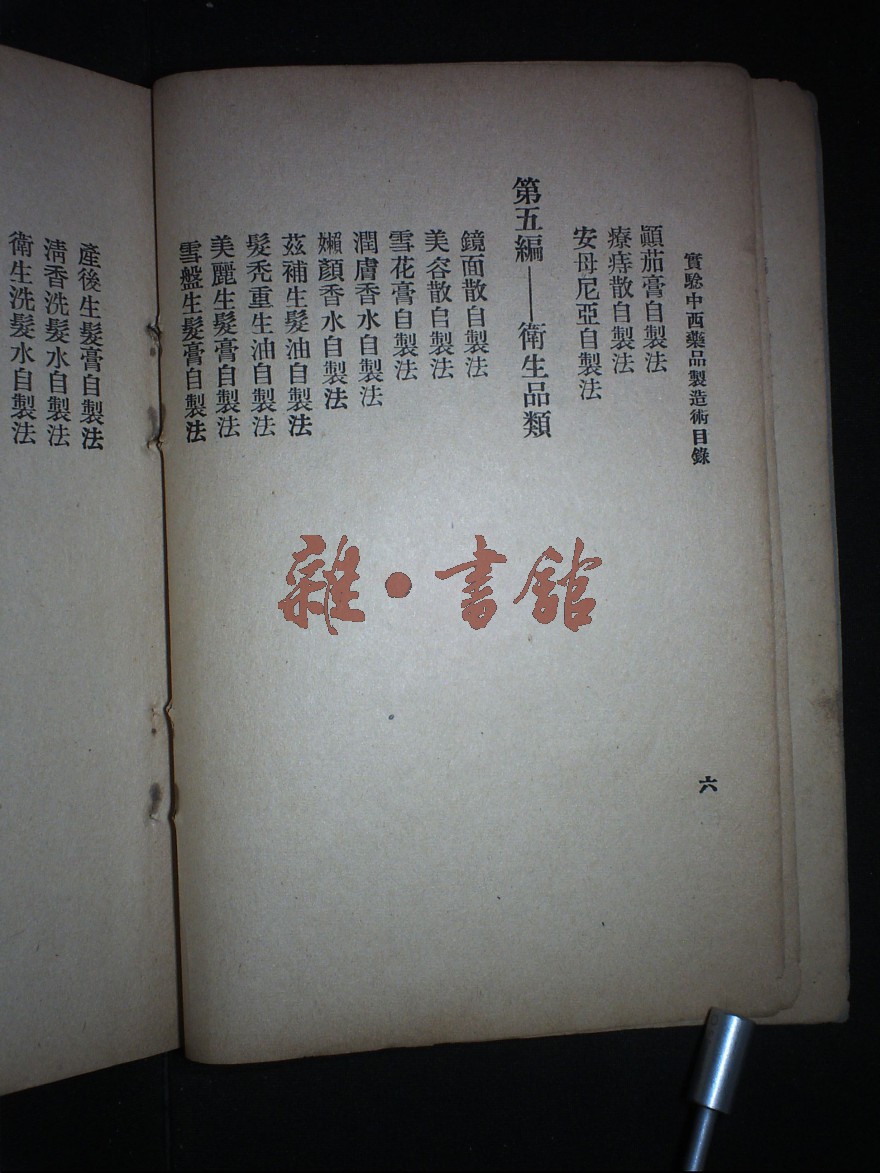 實驗中西藥品製造術目錄
六
顚茄膏自製法
療痔散自製法
安母尼亞自製法
第五編——衛生品類
鏡面散自製法
美容散自製法
雪花膏自製法
潤膚香水自製法
嬾顏香水自製法
茲補生髮油自製法
髮禿重生油自製法
美麗生髮膏自製法
雪盤生髮膏自製法
產後生髮膏自製法
清香洗髮水自製法
衛生洗髮水自製法
雜·書館